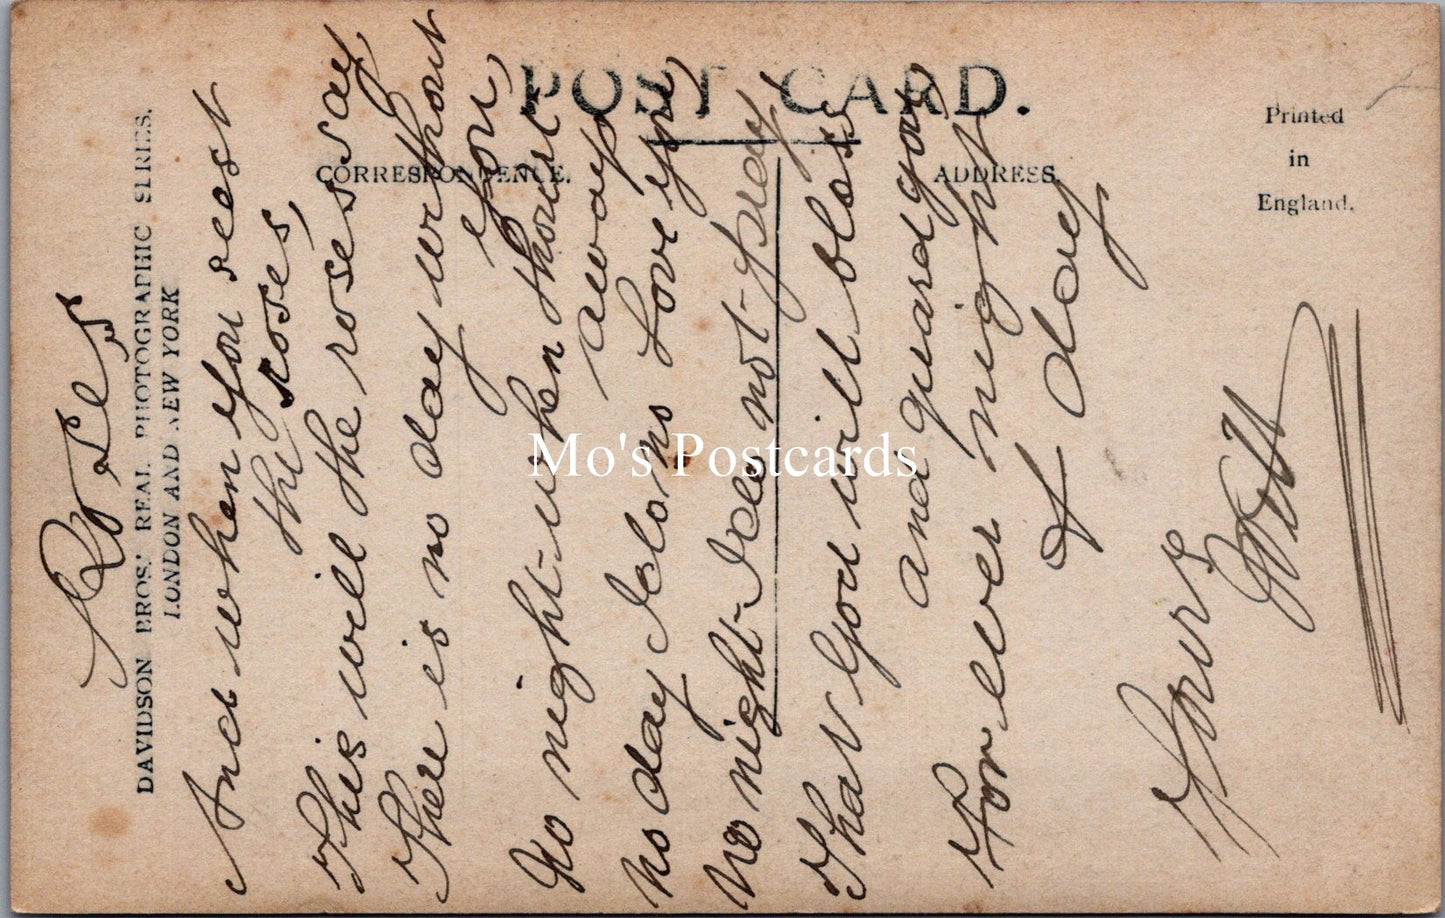 POST CARD.
CORRESPONDENCE.
ADDRESS.
Printed
in
England.
DAVIDSON BROS.' REAL PHOTOGRAPHIC SERIES.
LONDON AND NEW YORK
Roses
And when you reest
the roses,
This will the roses say
There is no day without
you
No night when thou'rt
away
No day I do no love you
No night I do not pray
That God will bless
and guard you
For ever night
& day
Yours
Will
Mo's Postcards